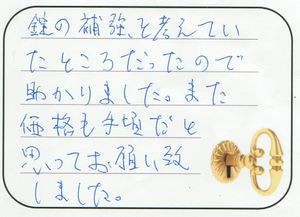 錠の補強を考えてい
たところだったので
助かりました。また
価格も手頃だと
思ってお願い致
しました。